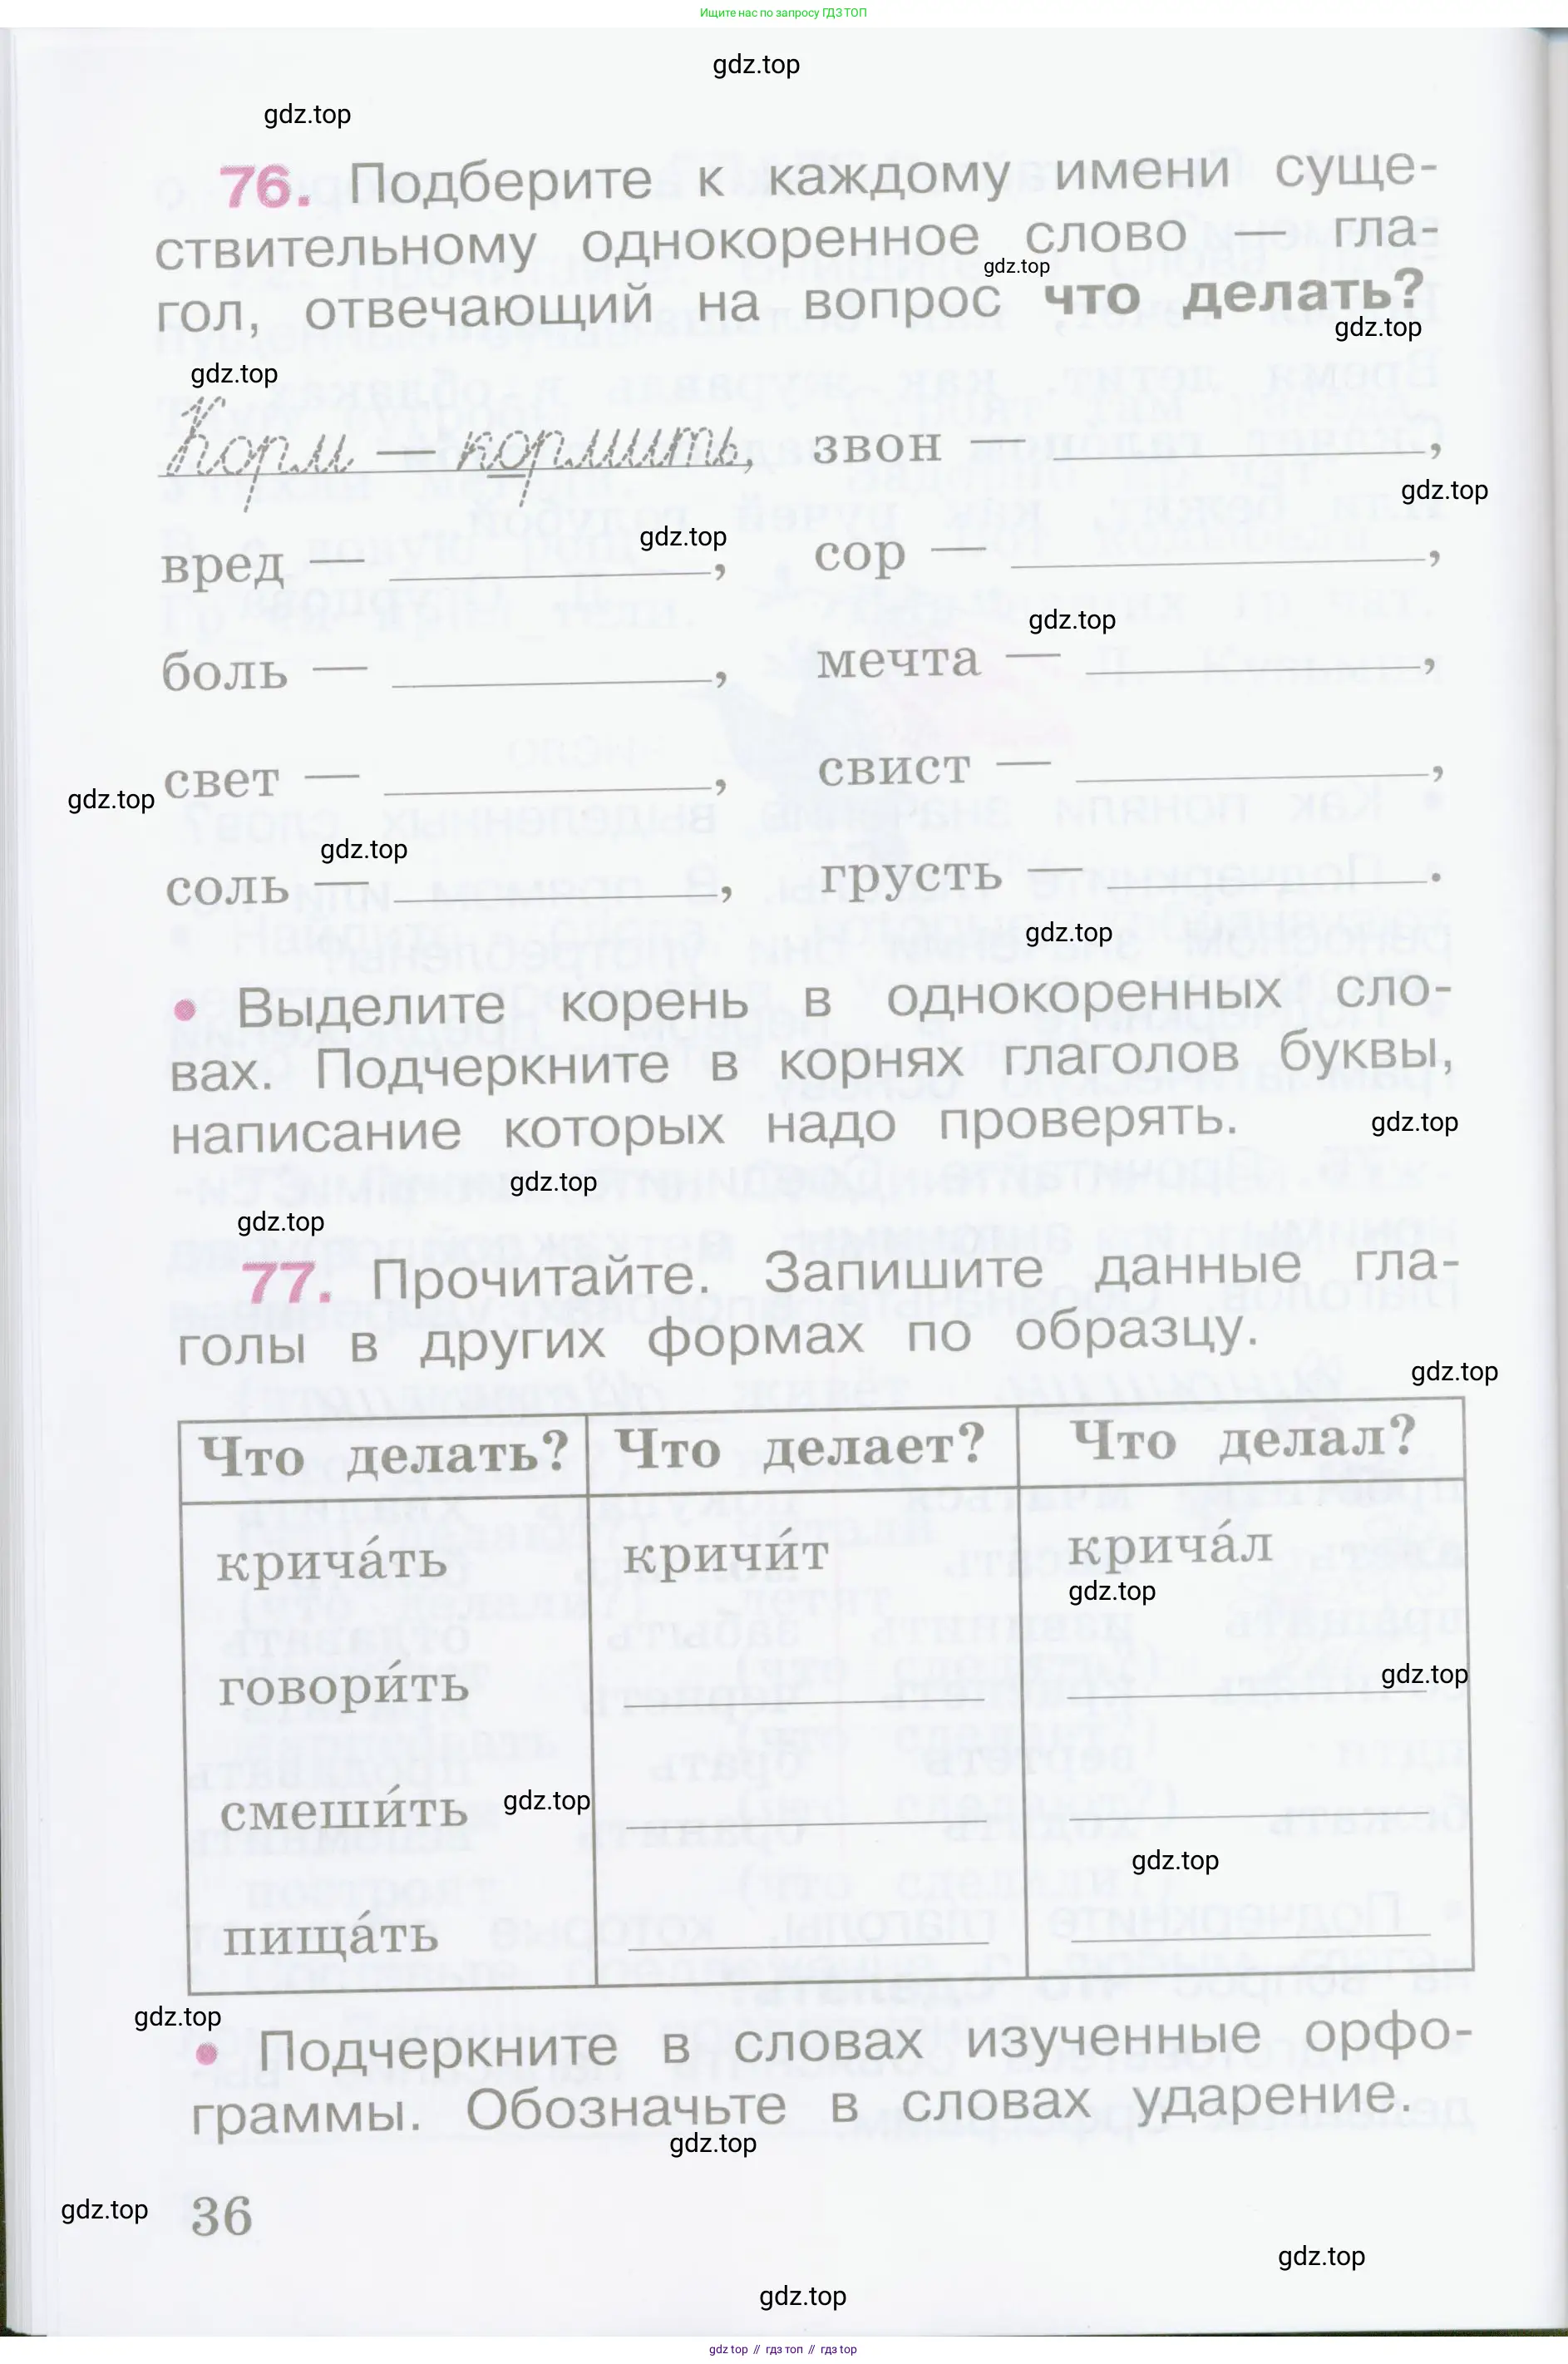 Ищите нас по запросу ГДЗ ТОП
gdz.top
gdz.top
76. Подберите к каждому имени суще-
ствительному однокоренное слово — гла-
gdz.top
гол, отвечающий на вопрос что делать?
gdz.top
gdz.top
Корм — кормить, звон — ,
gdz.top
gdz.top
вред — , сор — ,
gdz.top
боль — , мечта — ,
свет — , свист — ,
gdz.top
gdz.top
соль — , грусть — .
gdz.top
• Выделите корень в однокоренных сло-
вах. Подчеркните в корнях глаголов буквы,
написание которых надо проверять.
gdz.top
gdz.top
gdz.top
77. Прочитайте. Запишите данные гла-
голы в других формах по образцу.
gdz.top
Что делать? Что делает? Что делал?
крича́ть кричи́т крича́л
gdz.top
gdz.top
говори́ть
смеши́ть
gdz.top
gdz.top
пища́ть
gdz.top
• Подчеркните в словах изученные орфо-
граммы. Обозначьте в словах ударение.
gdz.top
gdz.top
36
gdz.top
gdz.top
gdz.top // гдз топ // гдз.top